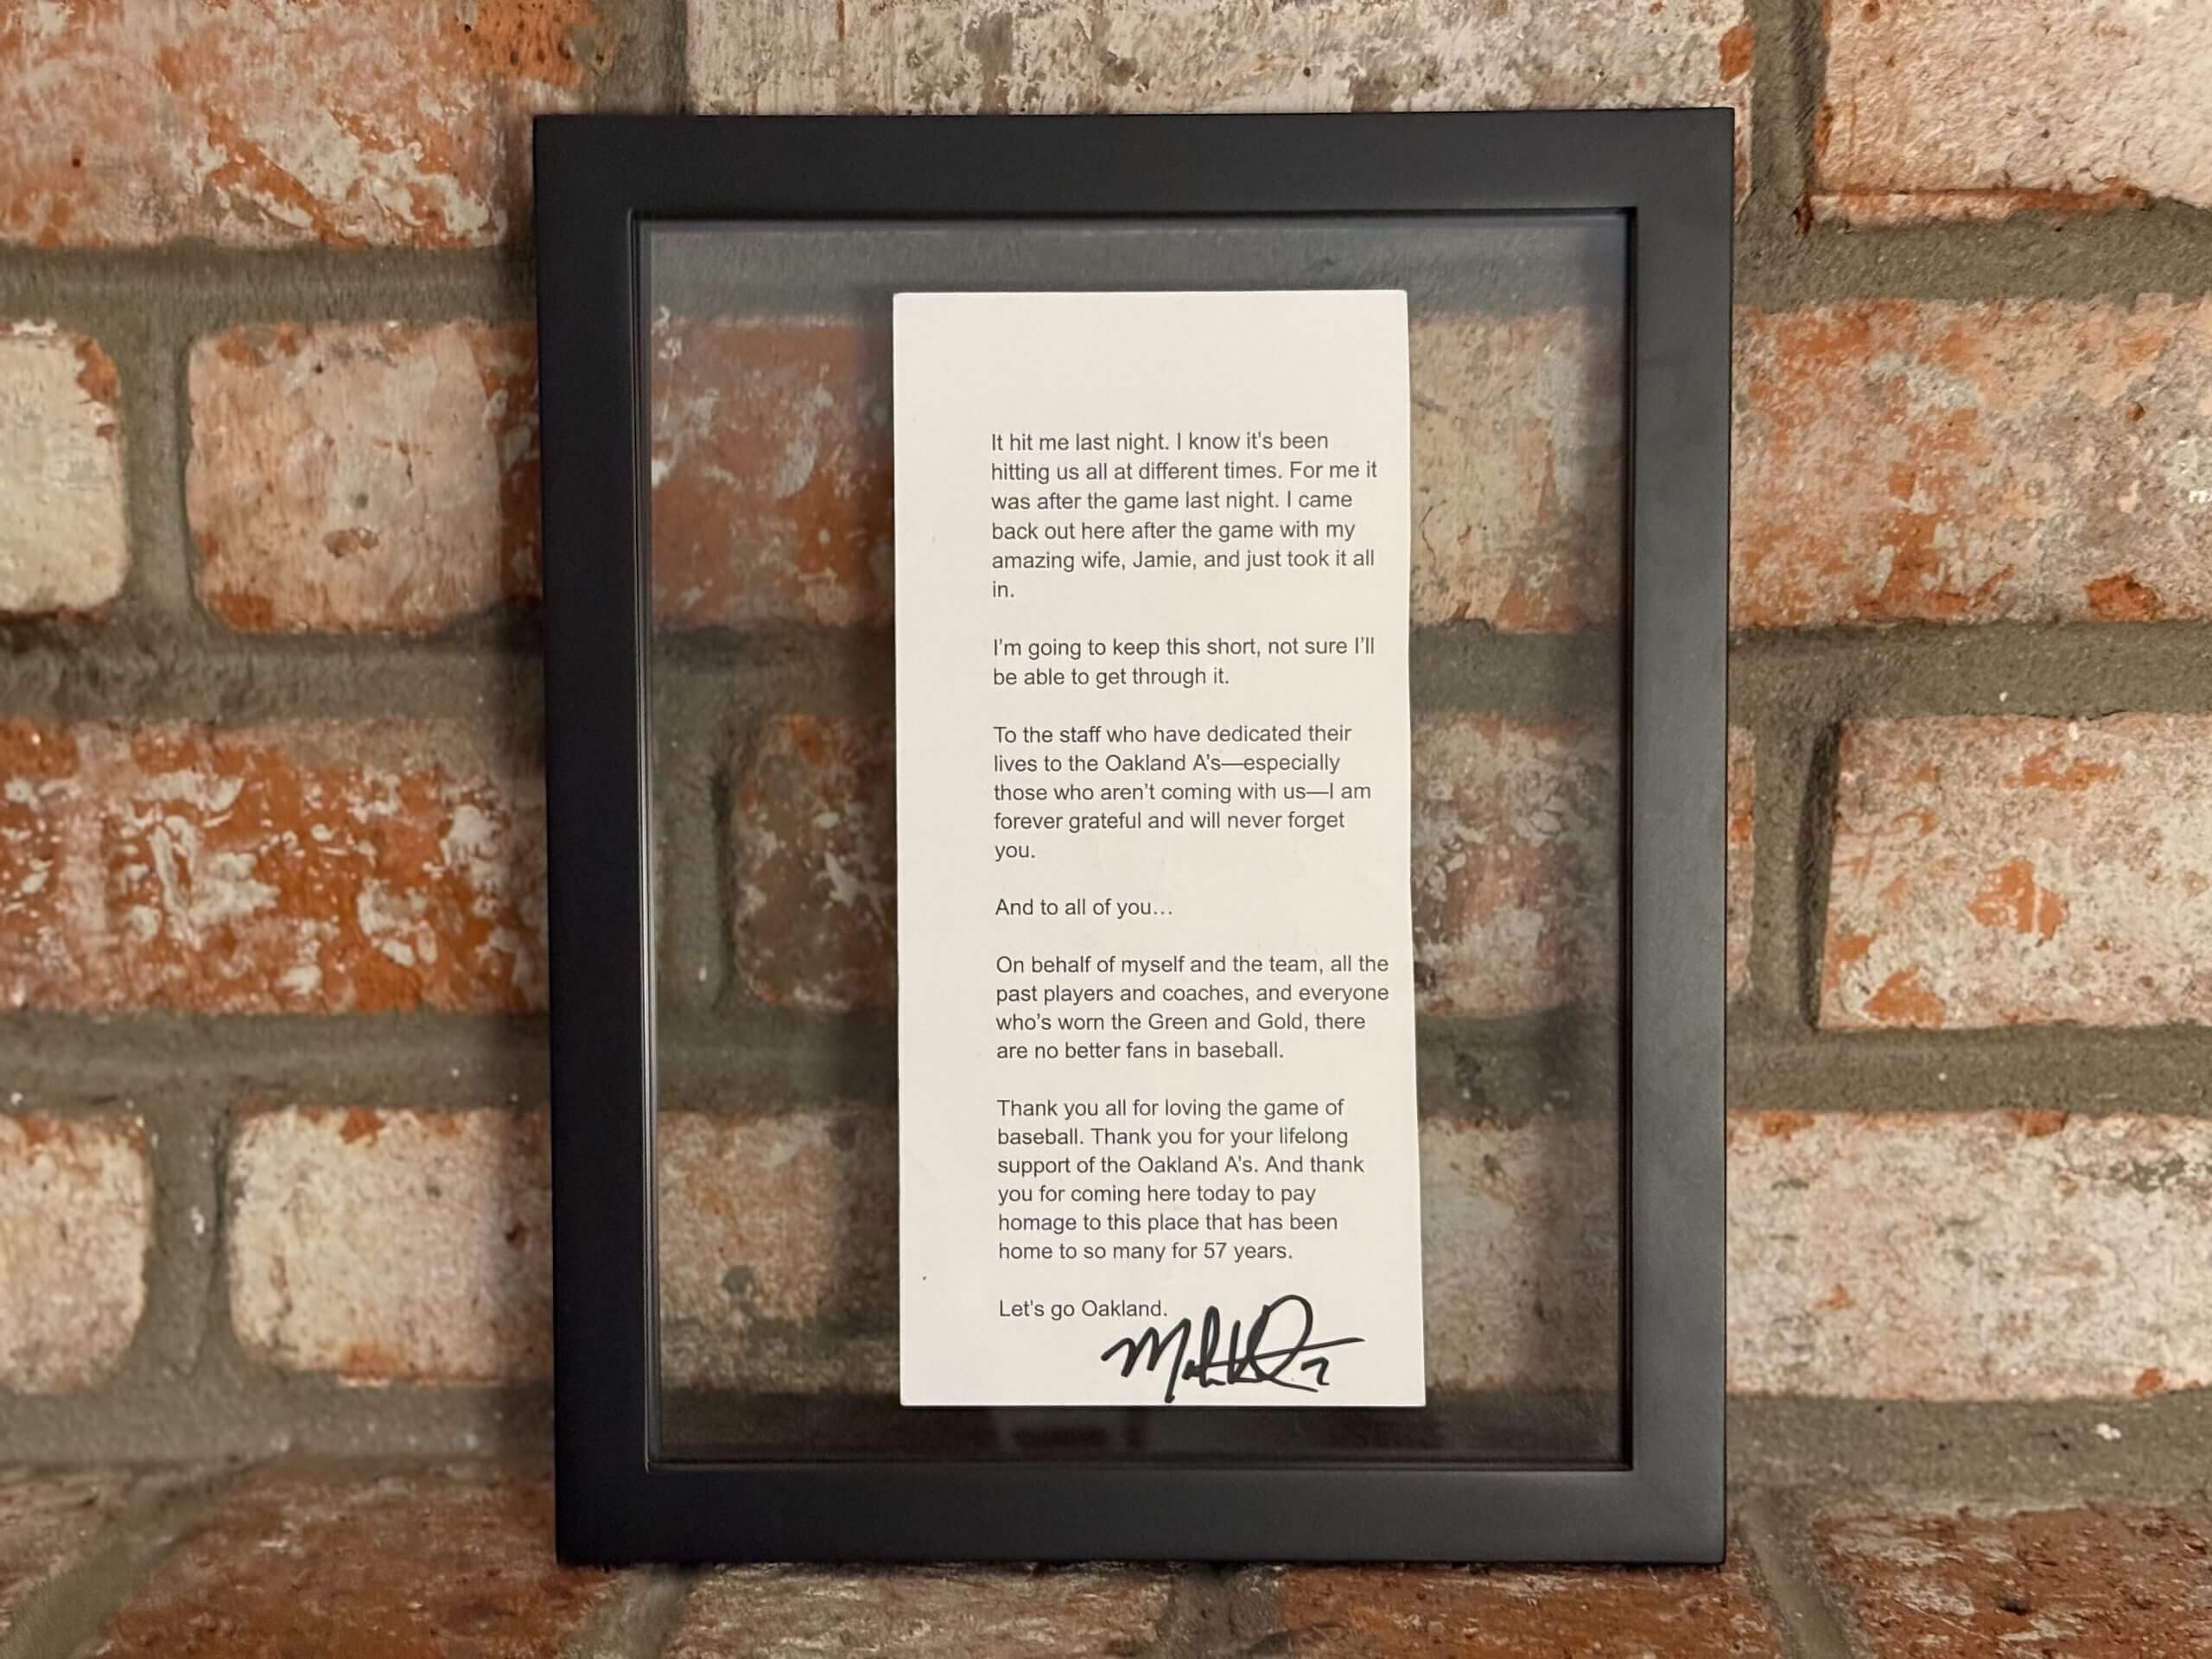 It hit me last night. I know it's been
hitting us all at different times. For me it
was after the game last night. I came
back out here after the game with my
amazing wife, Jamie, and just took it all
in.
I'm going to keep this short, not sure I'll
be able to get through it.
To the staff who have dedicated their
lives to the Oakland A's—especially
those who aren't coming with us—I am
forever grateful and will never forget
you.
And to all of you…
On behalf of myself and the team, all the
past players and coaches, and everyone
who's worn the Green and Gold, there
are no better fans in baseball.
Thank you all for loving the game of
baseball. Thank you for your lifelong
support of the Oakland A's. And thank
you for coming here today to pay
homage to this place that has been
home to so many for 57 years.
Let's go Oakland.